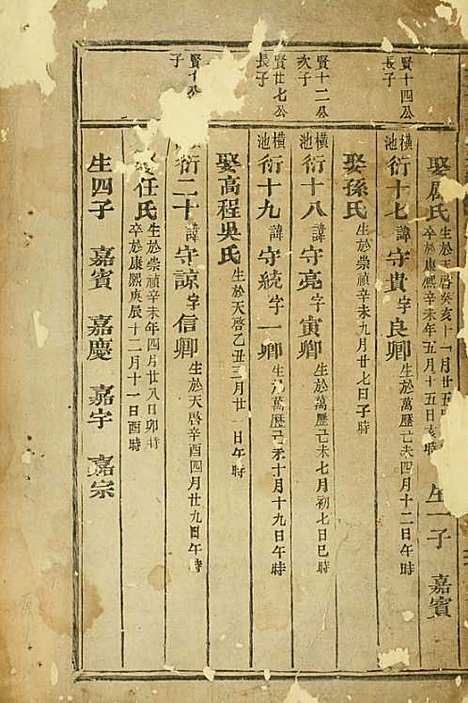 娶居氏 生於天啓癸亥十一月廿五 卒於康熙辛未年五月十五日亥時 生一子 嘉賓
賢十四公長子
橫池 衍十七 諱守貴字良卿 生於萬歷己未四月十二日午時
娶孫氏 生於崇禎辛未九月廿七日子時
賢十二公次子
橫池 衍十八 諱守亮字寅卿 生於萬歷己未七月初七日巳時
賢廿七公長子
橫池 衍十九 諱守統字一卿 生於萬歷己未十月十九日午時
娶高程吳氏 生於天啓乙丑三月廿日午時
賢十公子
衍二十 諱守諒字信卿 生於天啓辛酉四月廿九日午時
任氏 生於崇禎辛未年四月廿八日卯時 卒於康熙庚辰十二月十一日酉時
生四子 嘉賓 嘉慶 嘉宇 嘉宗